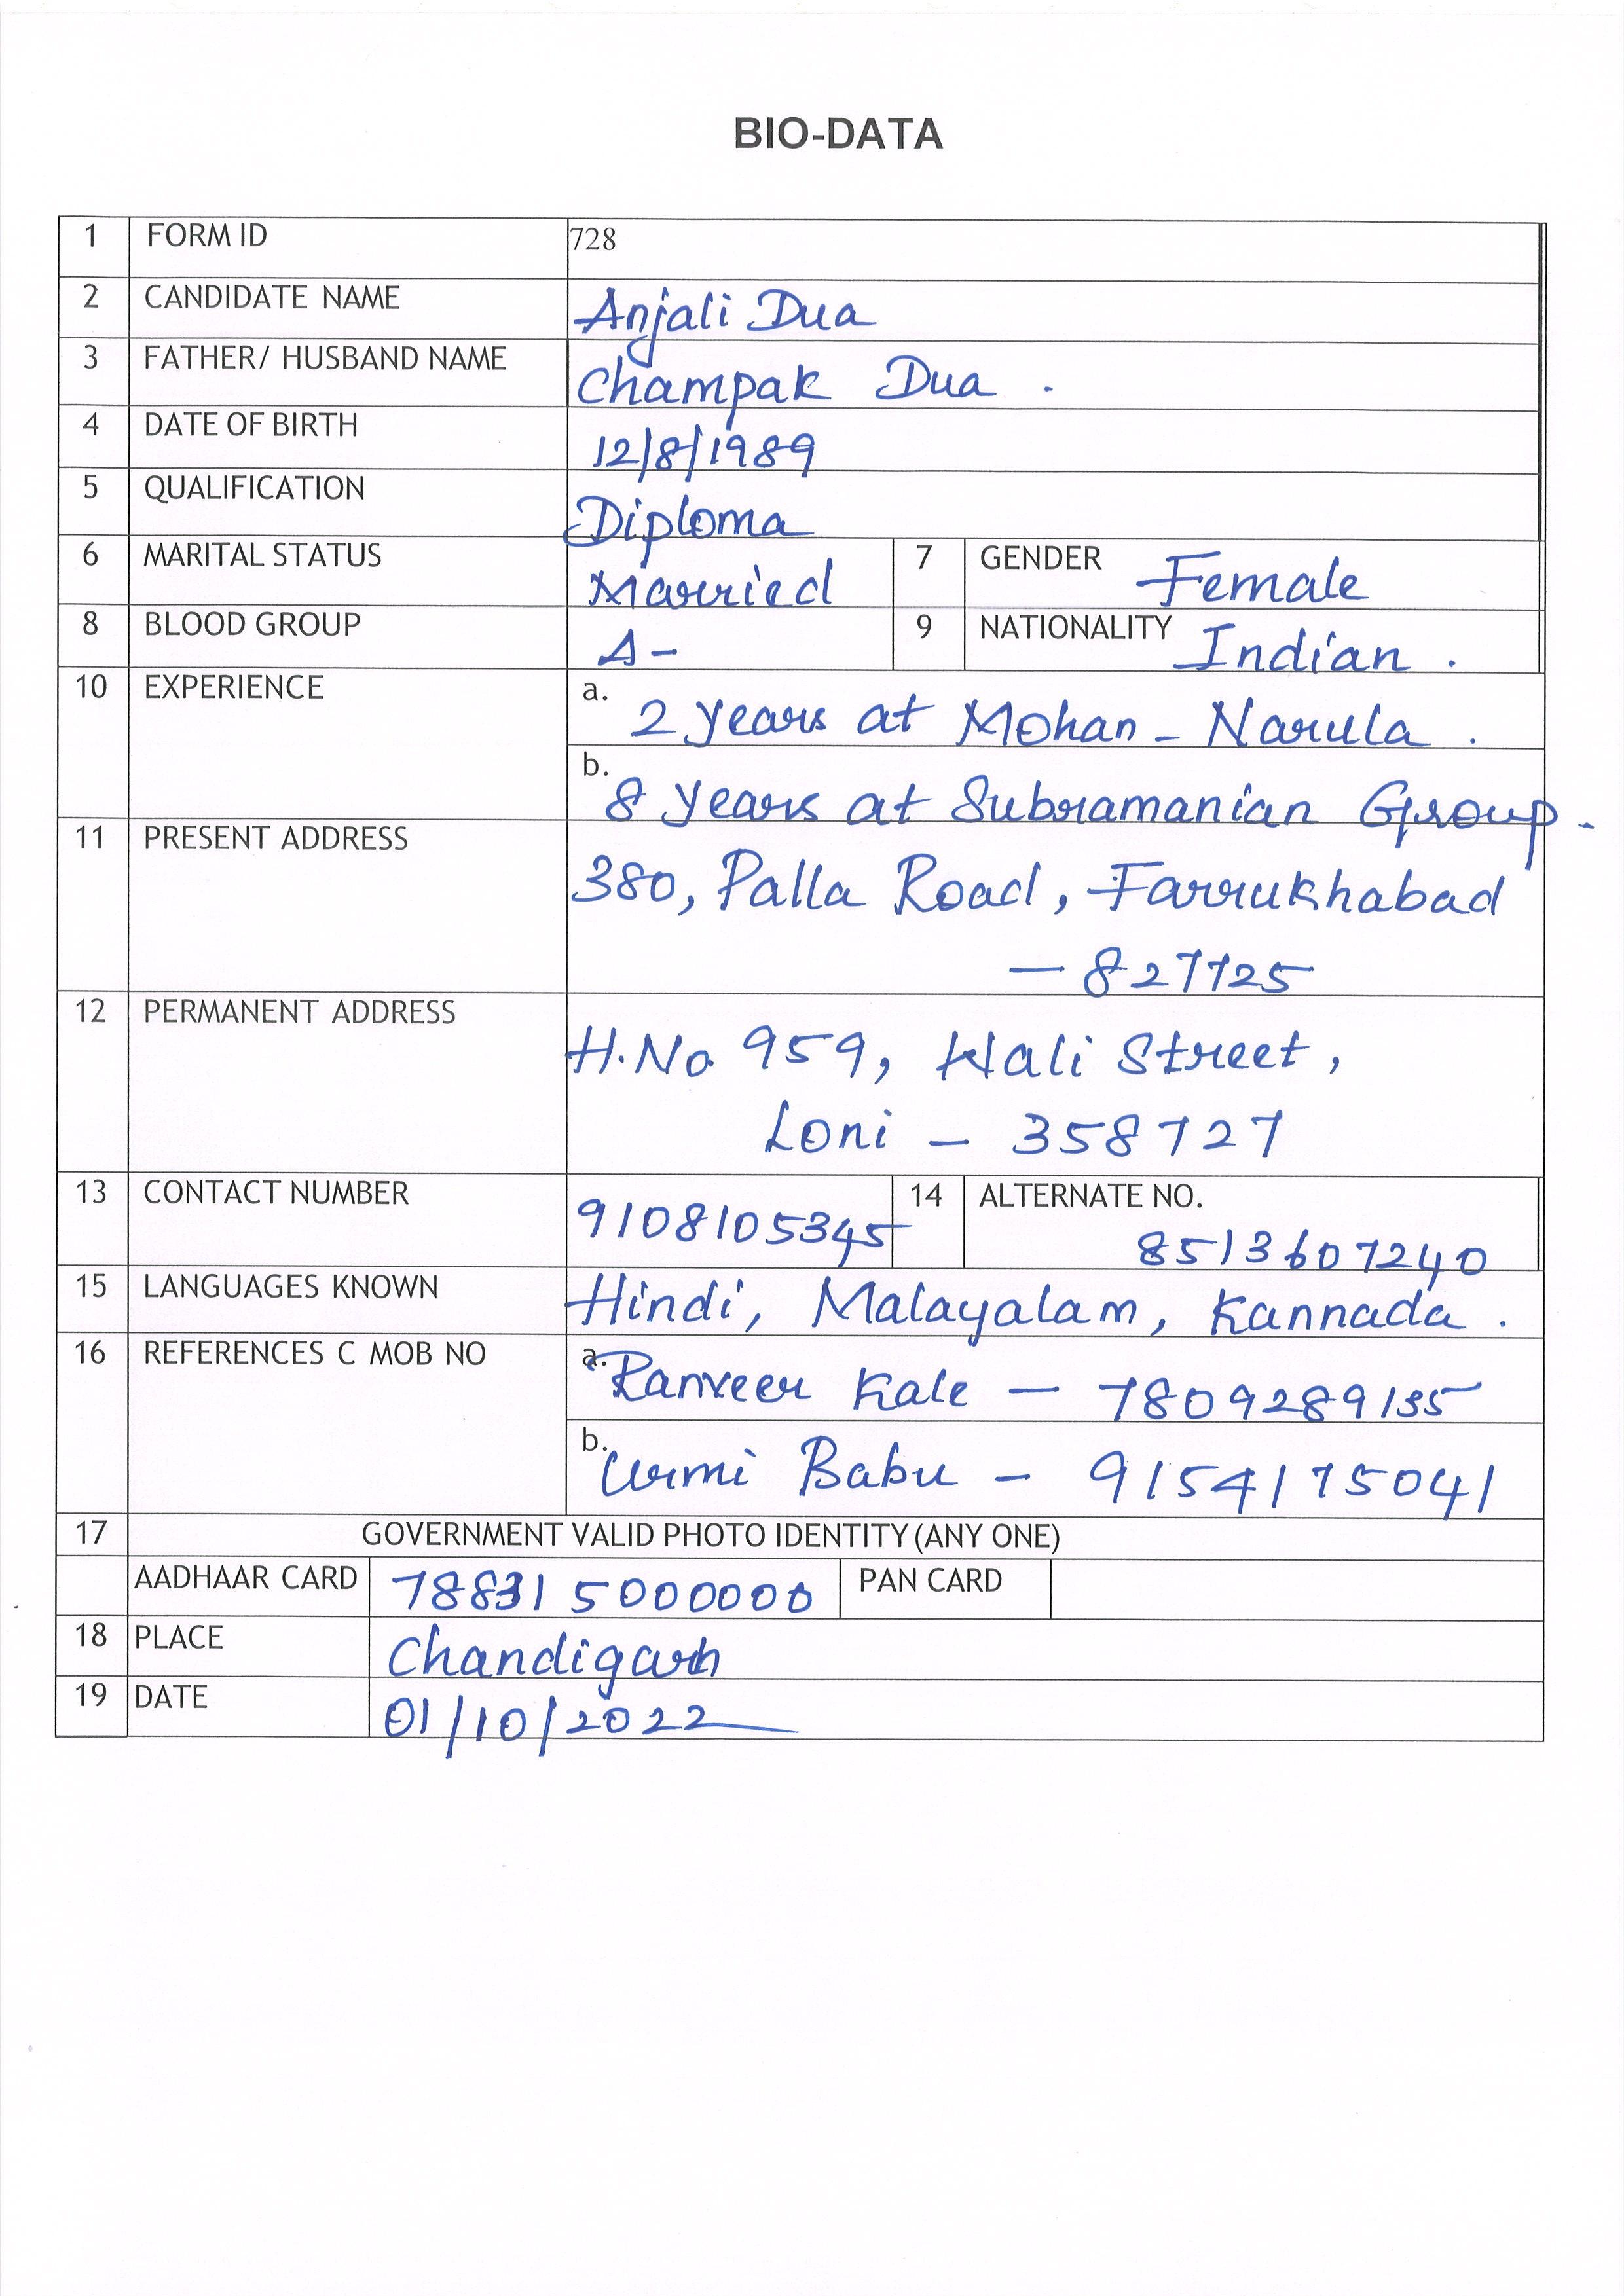 BIO-DATA
1 FORM ID 728
2 CANDIDATE NAME Anjali Dua
3 FATHER/ HUSBAND NAME Champak Dua .
4 DATE OF BIRTH 12/8/1989
5 QUALIFICATION Diploma
6 MARITAL STATUS Married 7 GENDER Female
8 BLOOD GROUP A- 9 NATIONALITY Indian .
10 EXPERIENCE a. 2 years at Mohan - Narula .
b. 8 years at Subramanian Group .
11 PRESENT ADDRESS 380, Palla Road, Farrukhabad
- 827725
12 PERMANENT ADDRESS H.No. 959, Wali Street,
Loni - 358727
13 CONTACT NUMBER 9108105345 14 ALTERNATE NO.
8513607240
15 LANGUAGES KNOWN Hindi, Malayalam, Kannada .
16 REFERENCES C MOB NO a. Ranveer Kale - 7809289135
b. Urmi Babu - 9154175041
17 GOVERNMENT VALID PHOTO IDENTITY (ANY ONE)
AADHAAR CARD 788315000000 PAN CARD
18 PLACE Chandigarh
19 DATE 01/10/2022